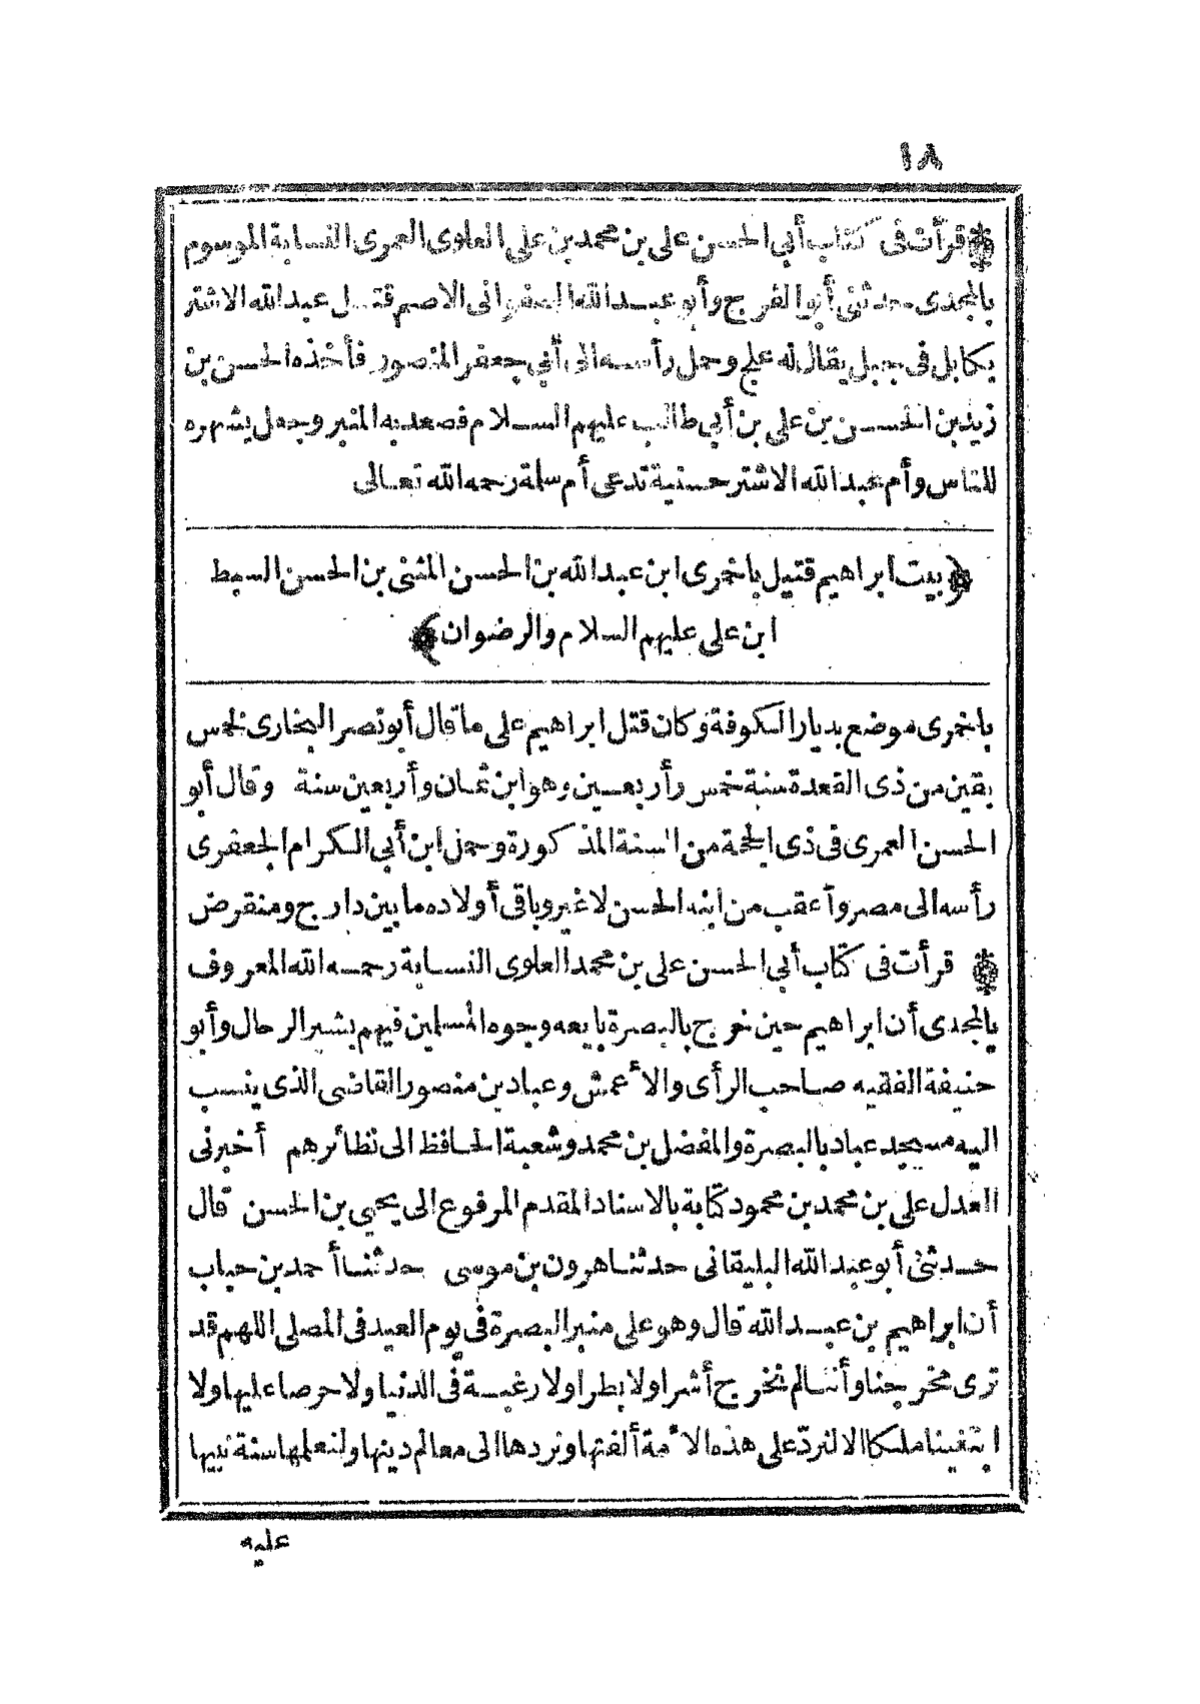 ١٨
قرأت فى كتاب أبى الحسن على بن محمد بن على العلوى العمرى النسابة الموسوم
بالمجدى حدثنى أبو الفرج وأبو عبد الله الصفوانى الاصم قتل عبد الله الاشتر
بكابل فى جبل يقال له علج وحمل رأسه الى أبى جعفر المنصور فأخذه الحسن بن
زيد بن الحسن بن على بن أبى طالب عليهم السلام فصعد به المنبر وجعل يشهره
للناس وأم عبد الله الاشتر حسنية تدعى أم سلمة رحمه الله تعالى
﴿بيت ابراهيم قتيل باخمرى ابن عبد الله بن الحسن المثنى بن الحسن السبط
ابن على عليهم السلام والرضوان﴾
باخمرى موضع بديار الكوفة وكان قتل ابراهيم على ما قال أبو نصر البخارى لخمس
بقين من ذى القعدة سنة خمس وأربعين وهو ابن ثمان وأربعين سنة وقال أبو
الحسن العمرى فى ذى الحجة من السنة المذكورة وحمل ابن أبى الكرام الجعفرى
رأسه الى مصر وأعقب من ابنه الحسن لا غير وباقى أولاده ما بين دارج ومنقرض
قرأت فى كتاب أبى الحسن على بن محمد العلوى النسابة رحمه الله المعروف
بالمجدى أن ابراهيم حين خرج بالبصرة بايعه وجوه المسلمين فيهم بشير الرحال وأبو
حنيفة الفقيه صاحب الرأى والأعمش وعباد بن منصور القاضى الذى ينسب
اليه مسجد عباد بالبصرة والمفضل بن محمد وشعبة الحافظ الى نظائرهم أخبرنى
العدل على بن محمد بن محمود كتابة بالاسناد المقدم المرفوع الى يحيى بن الحسن قال
حدثنى أبو عبد الله البليقانى حدثنا هرون بن موسى حدثنا أحمد بن حباب
أن ابراهيم بن عبد الله قال وهو على منبر البصرة فى يوم العيد فى المصلى اللهم قد
ترى مخرجنا وأننا لم نخرج أشرا ولا بطرا ولا رغبة فى الدنيا ولا حرصا عليها ولا
ابتغينا ملكا الا لنردّ على هذه الأمة ألفتها ونردها الى معالم دينها ولنعلمها سنة نبيها
عليه